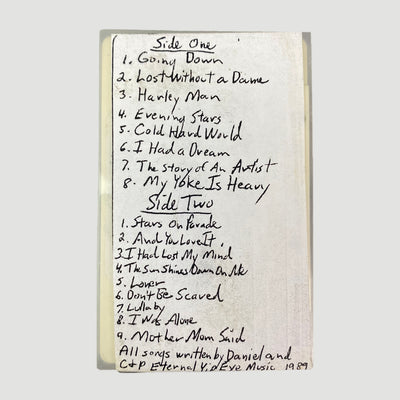 Side One
1. Going Down
2. Lost Without a Dame
3. Harley Man
4. Evening Stars
5. Cold Hard World
6. I Had a Dream
7. The Story of An Artist
8. My Yoke Is Heavy
Side Two
1. Stars On Parade
2. And You Love It
3. I Had Lost My Mind
4. The Sun Shines Down On Me
5. Lover
6. Don't Be Scared
7. Lullaby
8. I Was Alone
9. Mother Mom Said
All songs written by Daniel and
C+P Eternal Yip Eye Music 1989